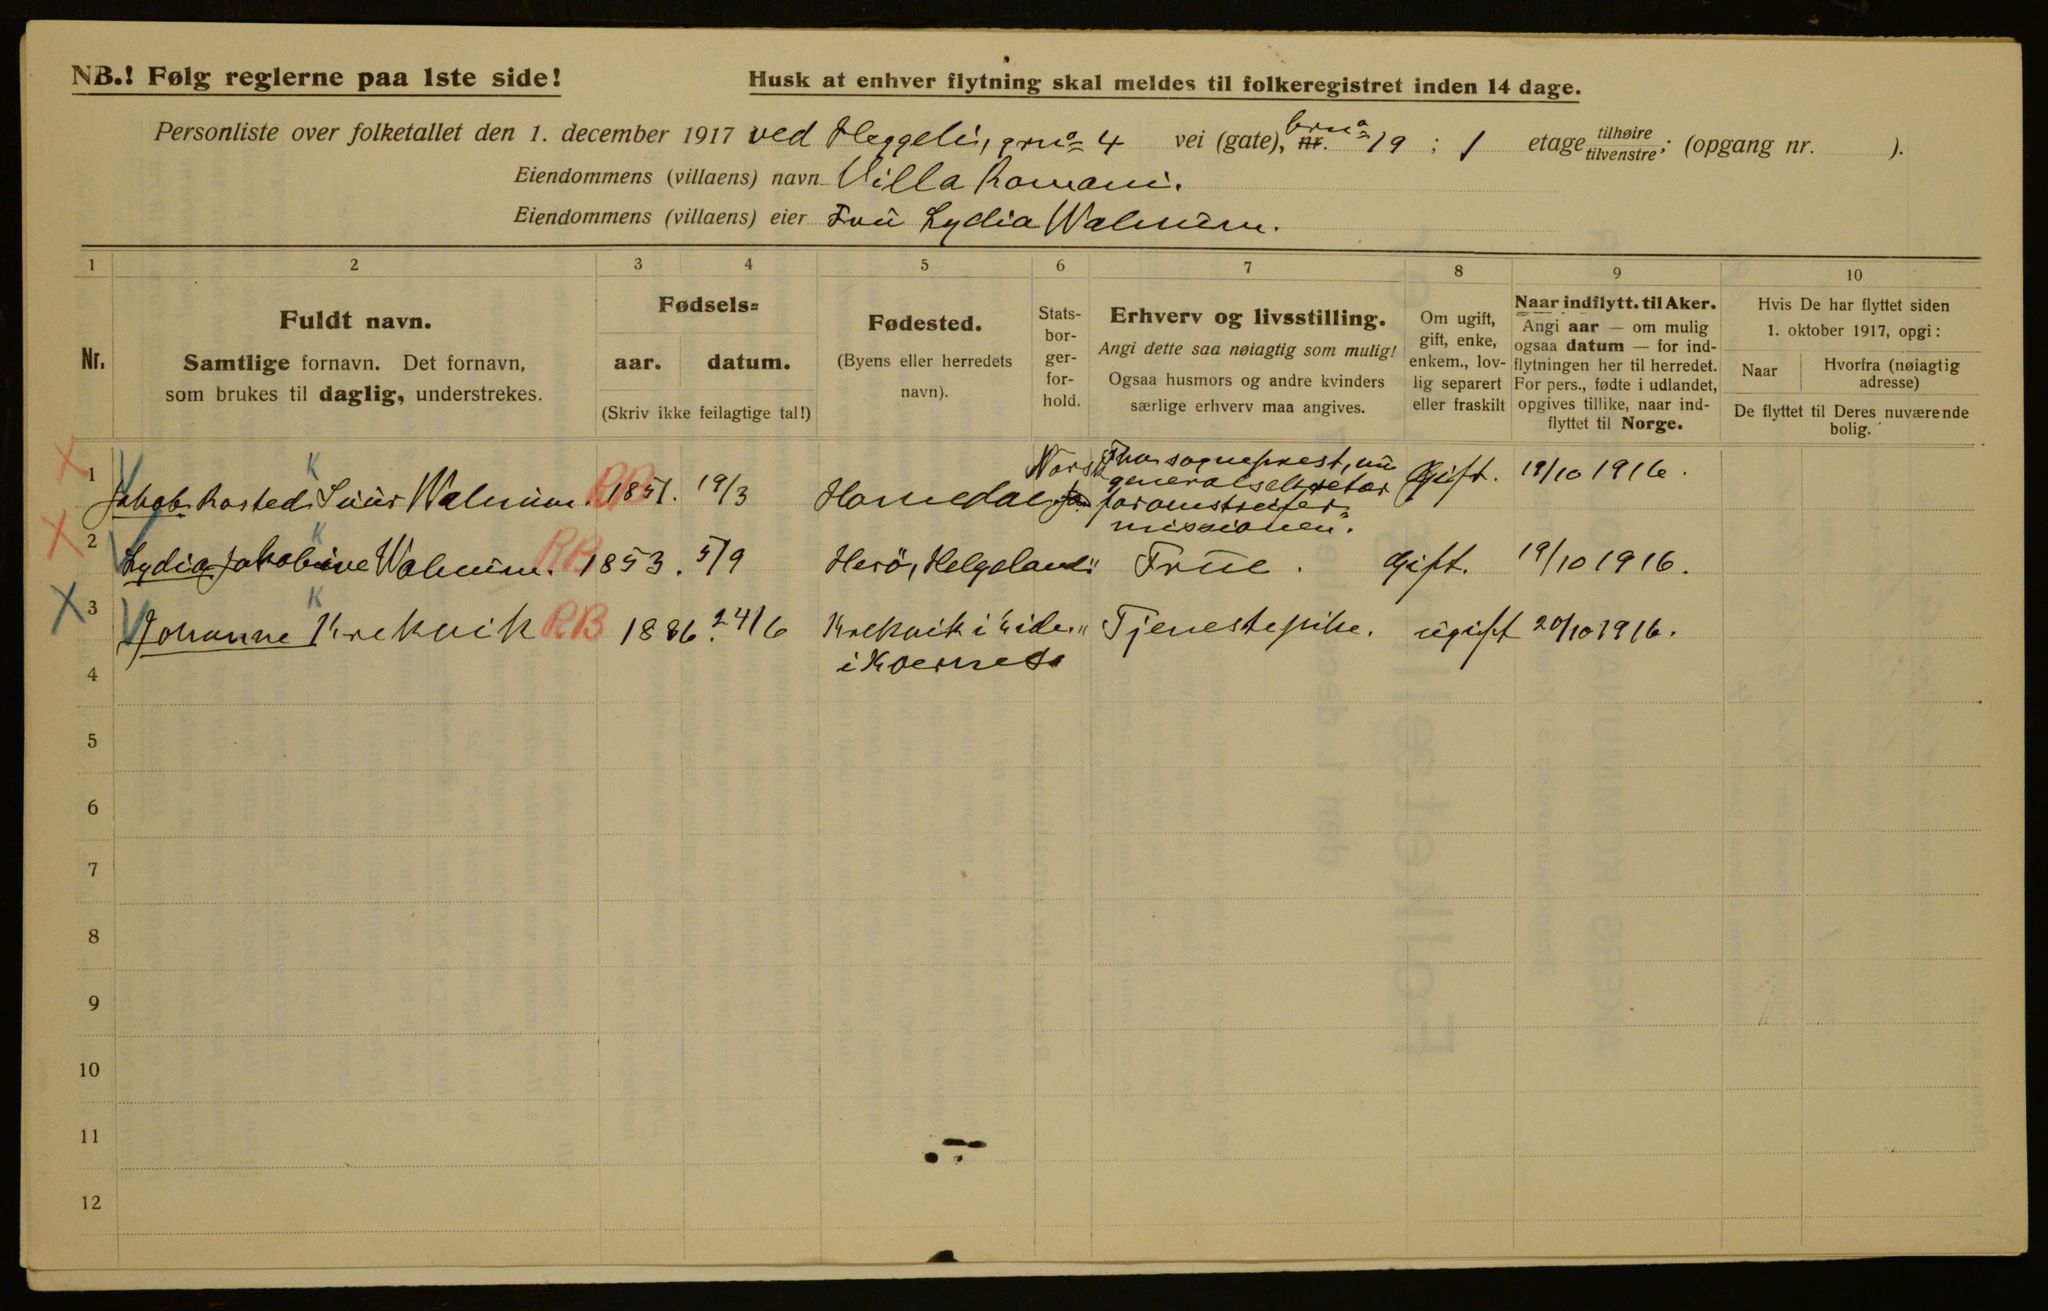 NB.! Følg reglerne paa 1ste side!
Husk at enhver flytning skal meldes til folkeregistret inden 14 dage.
Personliste over folketallet den 1. december 1917 ved Heggeli, grno 4 vei (gate), nr. brno 19 ; 1 etage tilhøire tilvenstre; (opgang nr. ).
Eiendommens (villaens) navn Villa Romani.
Eiendommens (villaens) eier Fru Lydia Walnum.
1 2 3 4 5 6 7 8 9 10
Nr.
Fuldt navn.
Samtlige fornavn. Det fornavn,
som brukes til daglig, understrekes.
Fødsels=
aar. datum.
(Skriv ikke feilagtige tal!)
Fødested.
(Byens eller herredets
navn).
Stats-
bor-
ger-
for-
hold.
Erhverv og livsstilling.
Angi dette saa nøiagtig som mulig!
Ogsaa husmors og andre kvinders
særlige erhverv maa angives.
Om ugift,
gift, enke,
enkem., lov-
lig separert
eller fraskilt
Naar indflytt. til Aker.
Angi aar — om mulig
ogsaa datum — for ind-
flytningen her til herredet.
For pers., fødte i udlandet,
opgives tillike, naar ind-
flyttet til Norge.
Hvis De har flyttet siden
1. oktober 1917, opgi:
Naar
Hvorfra (nøiagtig
adresse)
De flyttet til Deres nuværende
bolig.
1 Jakob Rosted Suur Walnum. RB 1851. 19/3 Homedal Norsk sogneprest, nu
generalsekretær
for omstreifer=
missionen. Gift. 19/10 1916.
2 Lydia Jakobine Walnum. RB 1853. 5/9 Herö, Helgeland. Frue. Gift. 19/10 1916.
3 Johanne Krekvik RB 1886. 24/6 Krekvik i
i Kvernes Tjenestepike. ugift 20/10 1916.
4
5
6
7
8
9
10
11
12